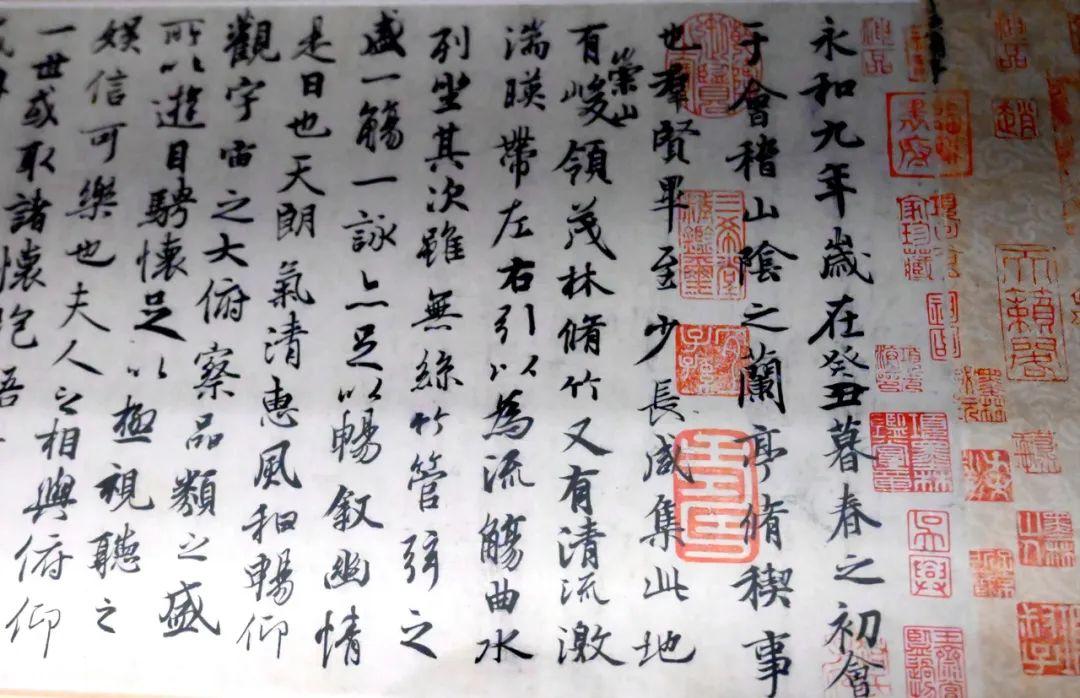 永和九年歲在癸丑暮春之初會
于會稽山陰之蘭亭脩稧事
也羣賢畢至少長咸集此地
有崇山峻領茂林脩竹又有清流激
湍暎帶左右引以為流觴曲水
列坐其次雖無絲竹管弦之
盛一觴一詠亦足以暢敘幽情
是日也天朗氣清惠風和暢仰
觀宇宙之大俯察品類之盛
所以遊目騁懷足以極視聽之
娛信可樂也夫人之相與俯仰
一世或取諸懷抱悟
天籟閣